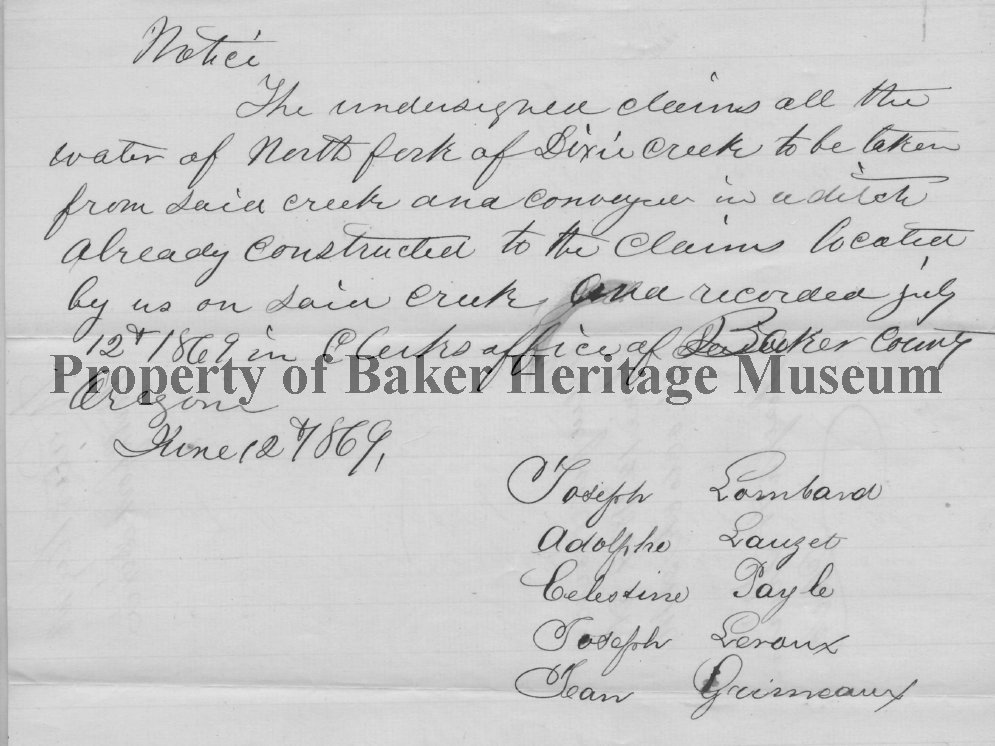 Notice
The undersigned claims all the
water of North fork of Dixie creek to be taken
from said creek and conveyed in a ditch
already constructed to the claims located
by us on said creek and recorded july
12th 1869 in Clerks office of Baker County
Property of Baker Heritage Museum
Oregon
June 12th 1869,
Joseph Lombard
Adolphe Lauzet
Celestine Payle
Joseph Leroux
Jean Grimeaux